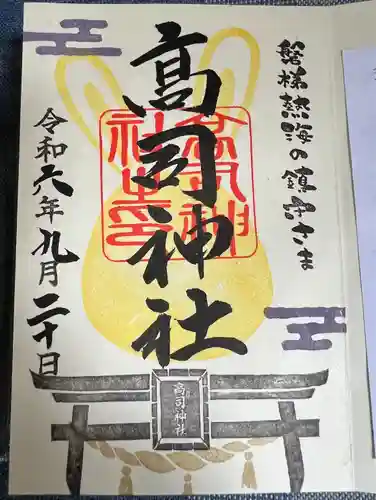 磐梯熱海の鎮守さま
高司神社
令和六年九月二十日
高司神社